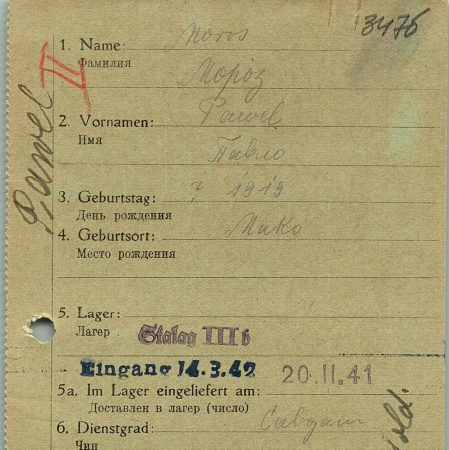 3475
1. Name: Moros
Фамилия
Мороз
II
Pawel
2. Vornamen: Pawel
Имя
Павло
3. Geburtstag: ? 1919
День рождения
4. Geburtsort: Мако
Место рождения
5. Lager:
Лагер
Stalag III b
Eingang 14.3.42
20.11.41
5a. Im Lager eingeliefert am:
Доставлен в лагер (число)
6. Dienstgrad:
Чин